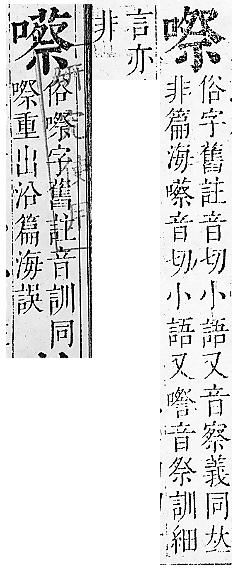 㗫
俗字舊註音切小語又音察義同𠀤
非篇海音切小語又音祭訓細
言亦
非
俗㗫字舊註音訓同
㗫重出沿篇海誤